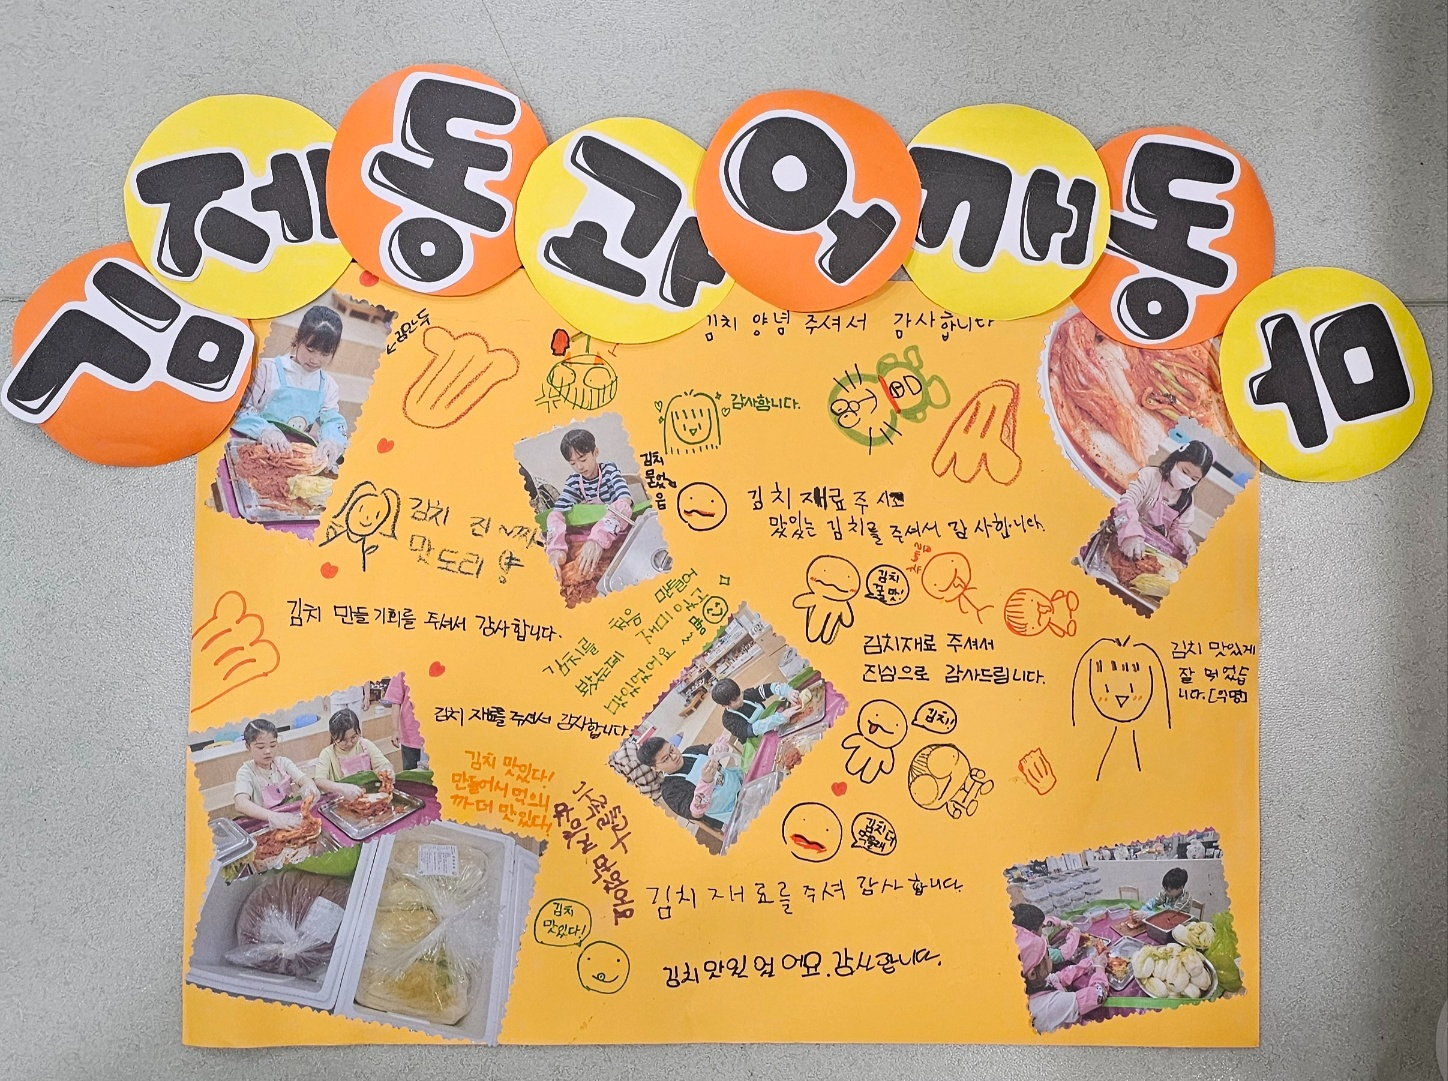 김제동과어깨동무
김치 양념 주셔서 감사합니다
감사합니다.
김치
음
김치 재료 주셔
맛있는 김치를 주셔서 감사합니다.
김치 진~짜
맛도리
김치
꿀맛!
김치 만들 기회를 주셔서 감사합니다.
김치를 처음 만들어
김치재료 주셔서
진심으로 감사드립니다.
김치 맛있게
잘 먹었습
니다.
김치 재료를 주셔서 감사합니다.
김치!!
김치 맛있다!
만들어서 먹으니
까 더 맛있다!
김치 더
김치 재료를 주셔 감사합니다.
김치
맛있다!
김치 맛있 었 어요. 감사합니다.